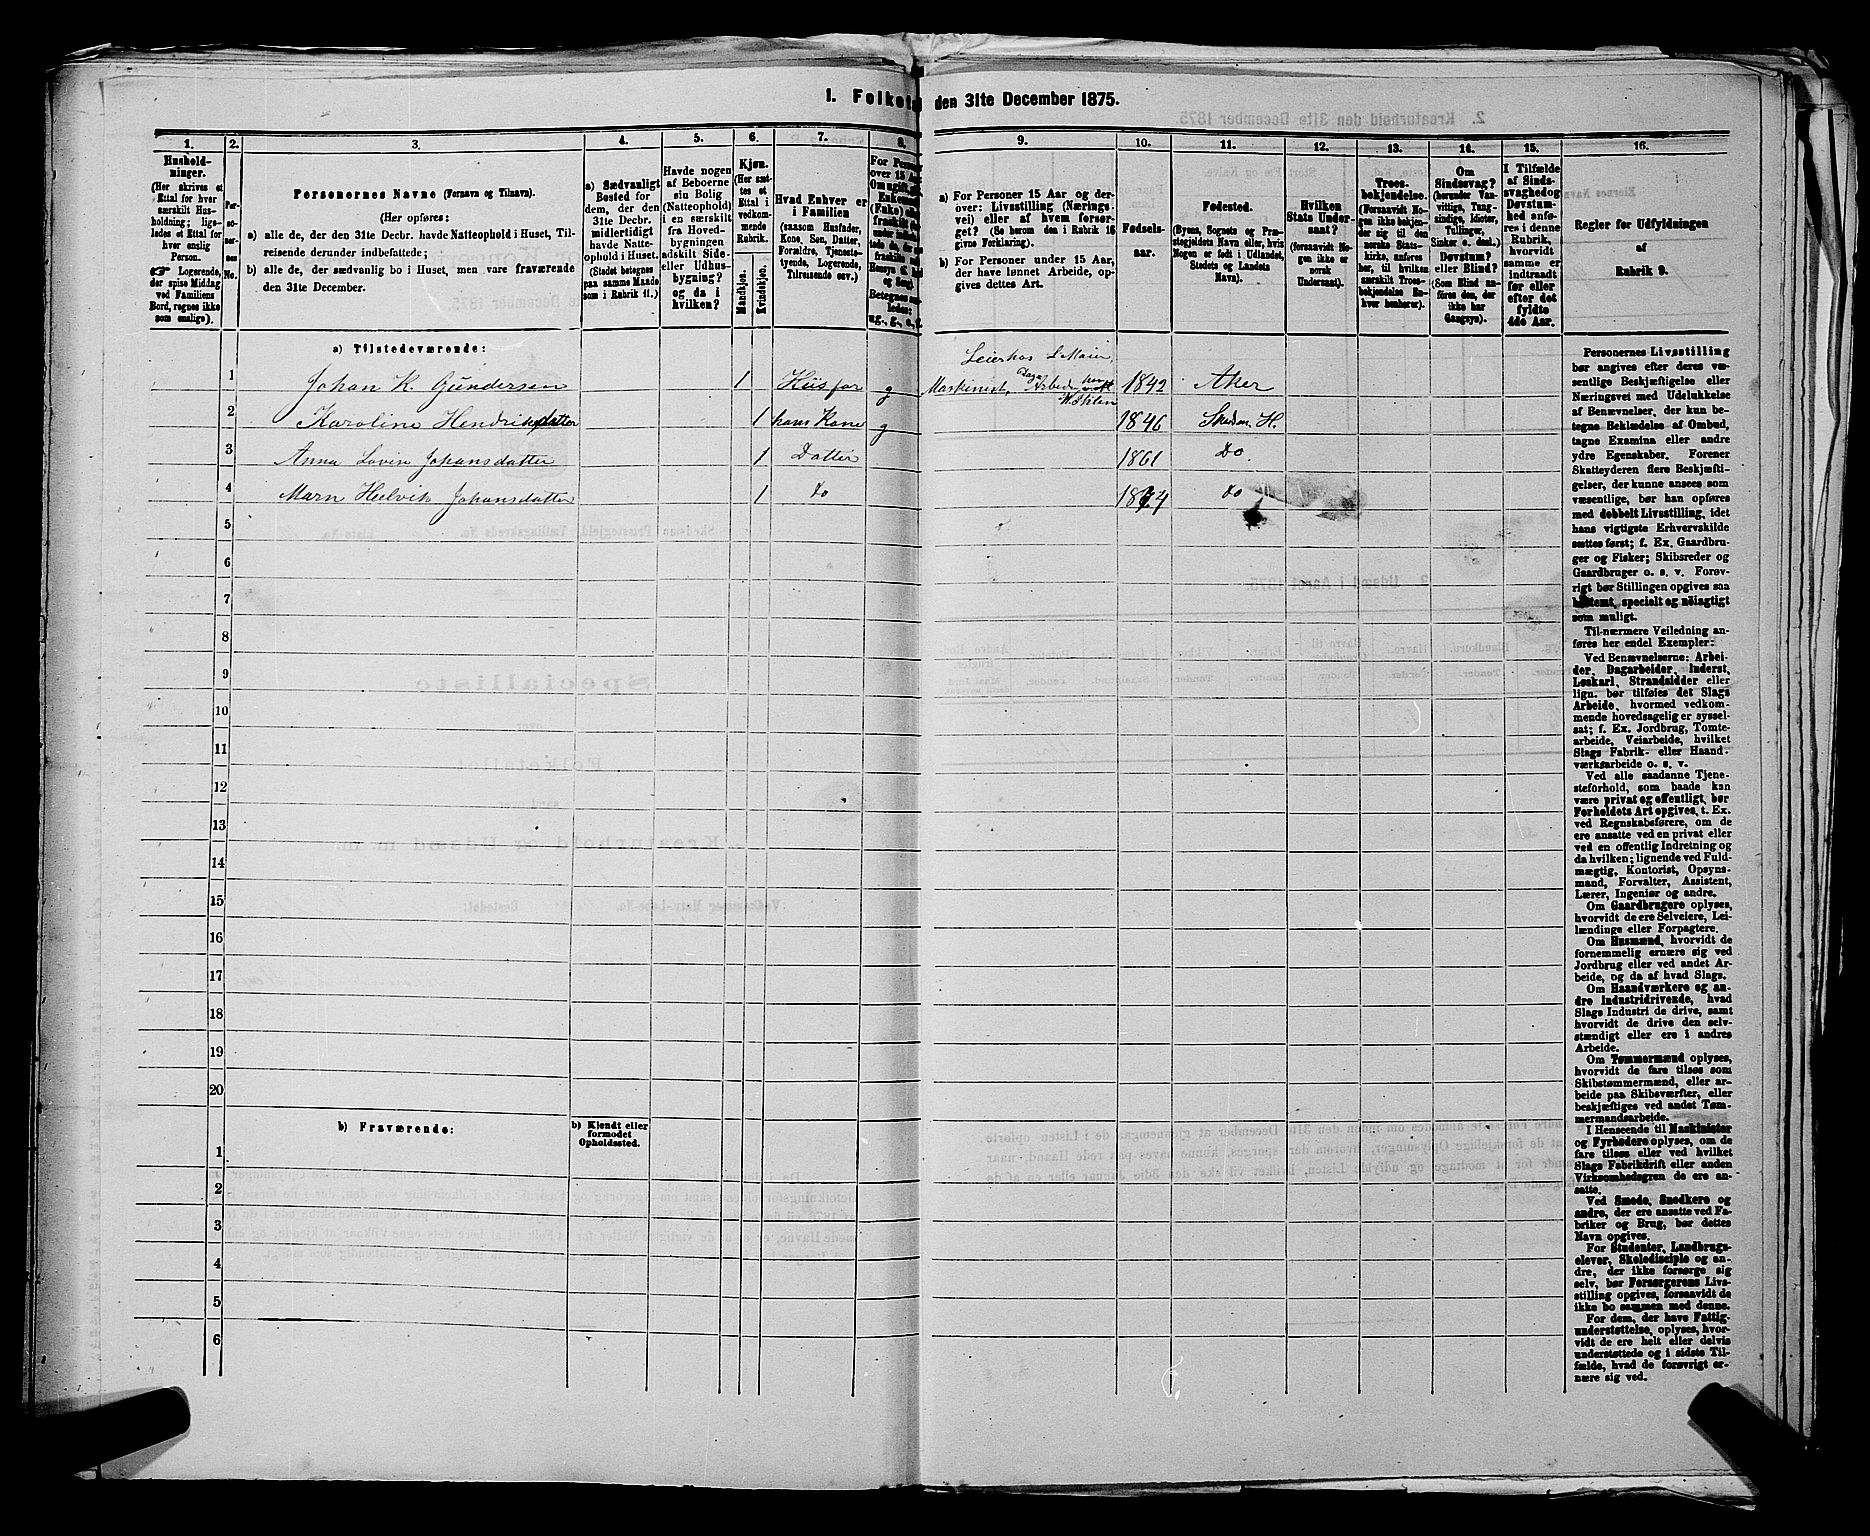 1. Folketal den 31te December 1875.
1. 2. 3. 4. 5. 6. 7. 8. 9. 10. 11. 12. 13. 14. 15. 16.
Hushold-
ninger.
(Her skrives et
Ettal for hver
særskilt Hus-
holdning; lige-
ledes et Ettal for
hver enslig
Person.
☞ Logerende,
der spise Middag
ved Familiens
Bord, regnes ikke
som enslige).
Per-
so-
ner-
nes
No.
Personernes Navne (Fornavn og Tilnavn).
(Her opføres:
a) alle de, der den 31te Decbr. havde Natteophold i Huset, Til-
reisende derunder indbefattede;
b) alle de, der sædvanlig bo i Huset, men vare fraværende
den 31te December.
a) Sædvanligt
Bosted for
dem, der den
31te Decbr.
midlertidigt
havde Natte-
ophold i Huset.
(Stedet betegnes
paa samme Maade
som i Rubrik 11.)
Havde nogen
af Beboerne
sin Bolig
(Natteophold)
i en særskilt
fra Hoved-
bygningen
adskilt Side-
eller Udhus-
bygning?
og da i
hvilken?
Kjøn.
(Her sæt-
tes et
Ettal i
vedkom-
mende
Rubrik.
Mandkjøn.
Kvindekjøn.
Hvad Enhver er
i Familien
(saasom Husfader,
Kone, Søn, Datter,
Forældre, Tjeneste-
tyende, Logerende,
Tilreisende osv.)
a) For Personer 15 Aar og der-
over: Livsstilling (Nærings-
vei) eller af hvem forsør-
get? (Se herom den i Rubrik 16
givne Forklaring).
b) For Personer under 15 Aar,
der have lønnet Arbeide, op-
gives dettes Art.
Fødsels-
aar.
Fødested.
(Byens, Sognets og Præ-
stegjeldets Navn eller, hvis
Nogen er født i Udlandet,
Stedets og Landets
Navn).
Hvilken
Stats Under-
saat?
(forsaavidt No-
gen ikke er
norsk
Undersaat).
Troes-
bekjendelse.
(Forsaavidt No-
gen ikke bekjen-
der sig til den
norske Stats-
kirke, anføres
her, til hvilken
særskilt Troes-
bekjendelse En-
hver henhører).
Om
Sindssvag?
(herunder Van-
vittige, Tung-
sindige, Idioter,
Tullinger,
Sinker o. desl.)
Døvstum?
eller Blind?
(Som Blind an-
føres den, der
ikke har
Gangsyn).
I Tilfælde
af Sinds-
svaghed og
Døvstum-
hed anfø-
res i denne
Rubrik,
hvorvidt
samme er
indtraadt
før eller
efter det
fyldte
4de Aar.
Regler for Udfyldningen
af
Rubrik 9.
a) Tilstedeværende:
Leierhos
1 Johan K. Gundersen 1 Husfar g Maskinist, Dag Arbeide 1842 Aker
2 Karoline Hendriksdatter 1 hans Kone g 1846 Skedsm. H.
3 Anna Lovin Johansdatter 1 Datter 1861 Do.
4 Marn Helvik Johansdatter 1 do 1874 do
5
6
7
8
9
10
11
12
13
14
15
16
17
18
19
20
b) Fraværende: b) Kjendt eller
formodet
Opholdssted.
1
2
3
4
5
6
Personernes Livsstilling
bør angives efter deres væ-
sentlige Beskjæftigelse eller
Næringsvei med Udelukkelse
af Benævnelser, der kun be-
tegne Beklædelse af Ombud,
tagne Examina eller andre
ydre Egenskaber. Forener
Skatteyderen flere Beskjæfti-
gelser, der kunne ansees som
væsentlige, bør han opføres
med dobbelt Livsstilling, idet
hans vigtigste Erhvervskilde
sættes først; f. Ex. Gaardbru-
ger og Fisker; Skibsreder og
Gaardbruger o. s. v. Forøv-
rigt bør Stillingen opgives saa
bestemt, specielt og nøiagtigt
som muligt.
Til nærmere Veiledning an-
føres her endel Exempler:
Ved Benævnelserne: Arbei-
der, Dagarbeider, Inderst,
Løskarl, Strandsidder eller
lign. bør tilføies det Slags
Arbeide, hvormed vedkom-
mende hovedsagelig er syssel-
sat; f. Ex. Jordbrug, Tomte-
arbeide, Veiarbeide, hvilket
Slags Fabrik- eller Haand-
værksarbeide o. s. v.
Ved alle saadanne Tjene-
steforhold, som baade kan
være privat og offentligt, bør
Forholdets Art opgives, t. Ex.
ved Regnskabsførere, om de
ere ansatte ved en privat eller
ved en offentlig Indretning og
da hvilken; lignende ved Fuld-
mægtig, Kontorist, Opsyns-
mand, Forvalter, Assistent,
Lærer, Ingeniør og andre.
Om Gaardbrugere oplyses,
hvorvidt de ere Selveiere, Lei-
lændinge eller Forpagtere.
Om Husmænd, hvorvidt de
fornemmelig ernære sig ved
Jordbrug eller ved andet Ar-
beide, og da af hvad Slags.
Om Haandværkere og an-
dre Industridrivende, hvad
Slags Industri de drive, samt
hvorvidt de drive den selv-
stændigt eller ere i andres
Arbeide.
Om Tømmermænd oplyses,
hvorvidt de fare tilsøs som
Skibstømmermænd, eller ar-
beide paa Skibsværfter, eller
beskjæftiges ved andet Tøm-
mermandsarbeide.
I Henseende til Maskinister
og Fyrbødere oplyses, om de
fare tilsøs eller ved hvilket
Slags Fabrikdrift eller anden
Virksomhedsgren de ere an-
satte.
Ved Smede, Snedkere og
andre, der ere ansatte ved Fa-
briker og Brug, bør dettes
Navn opgives.
For Studenter, Landbrugs-
elever, Skoledisciple og an-
dre, der ikke forsørge sig
selv, bør Forsørgerens Livs-
stilling opgives, forsaavidt de
ikke bo sammen med denne.
For dem, der have Fattig-
understøttelse, oplyses, hvor-
vidt de ere helt eller delvis
understøttede og i sidste Til-
fælde, hvad de forøvrigt er-
nære sig ved.